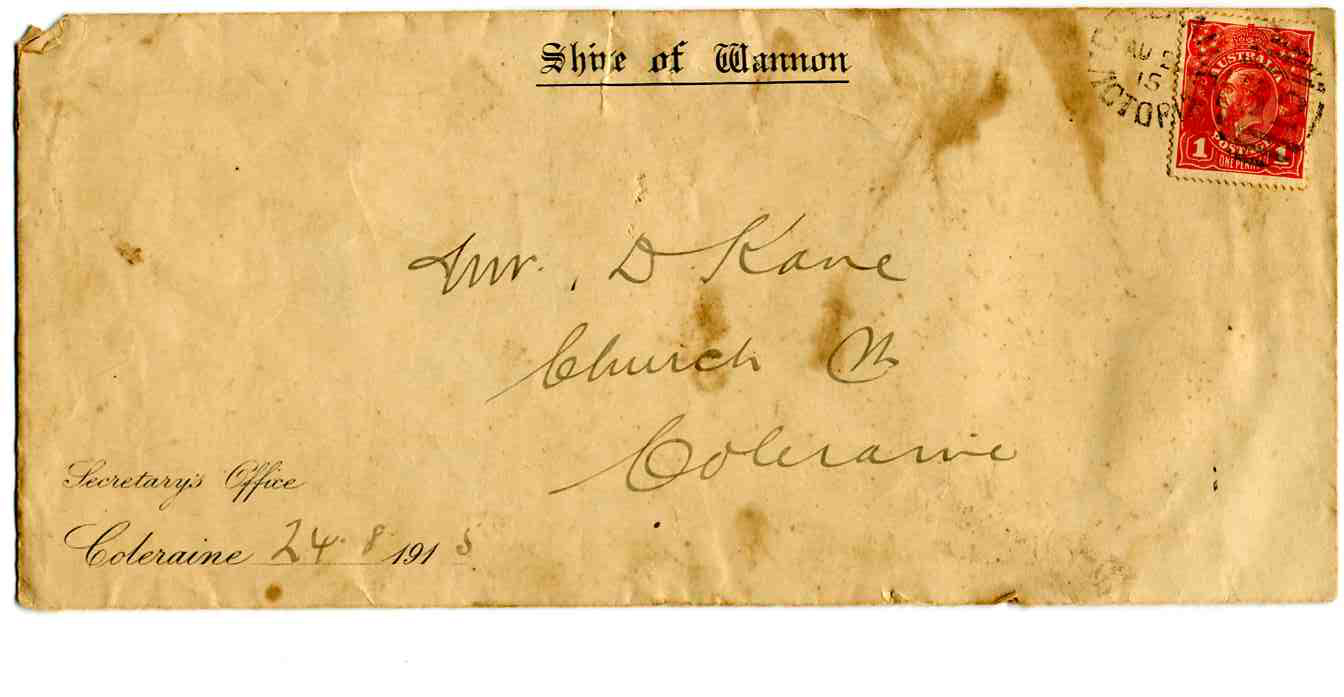 Shire of Wannon
AU 2
15
VICTORIA
AUSTRALIA
POSTAGE
1 1
ONE PENNY
Mr. D Kane
Church St
Coleraine
Secretary's Office
Coleraine 24.8 1915